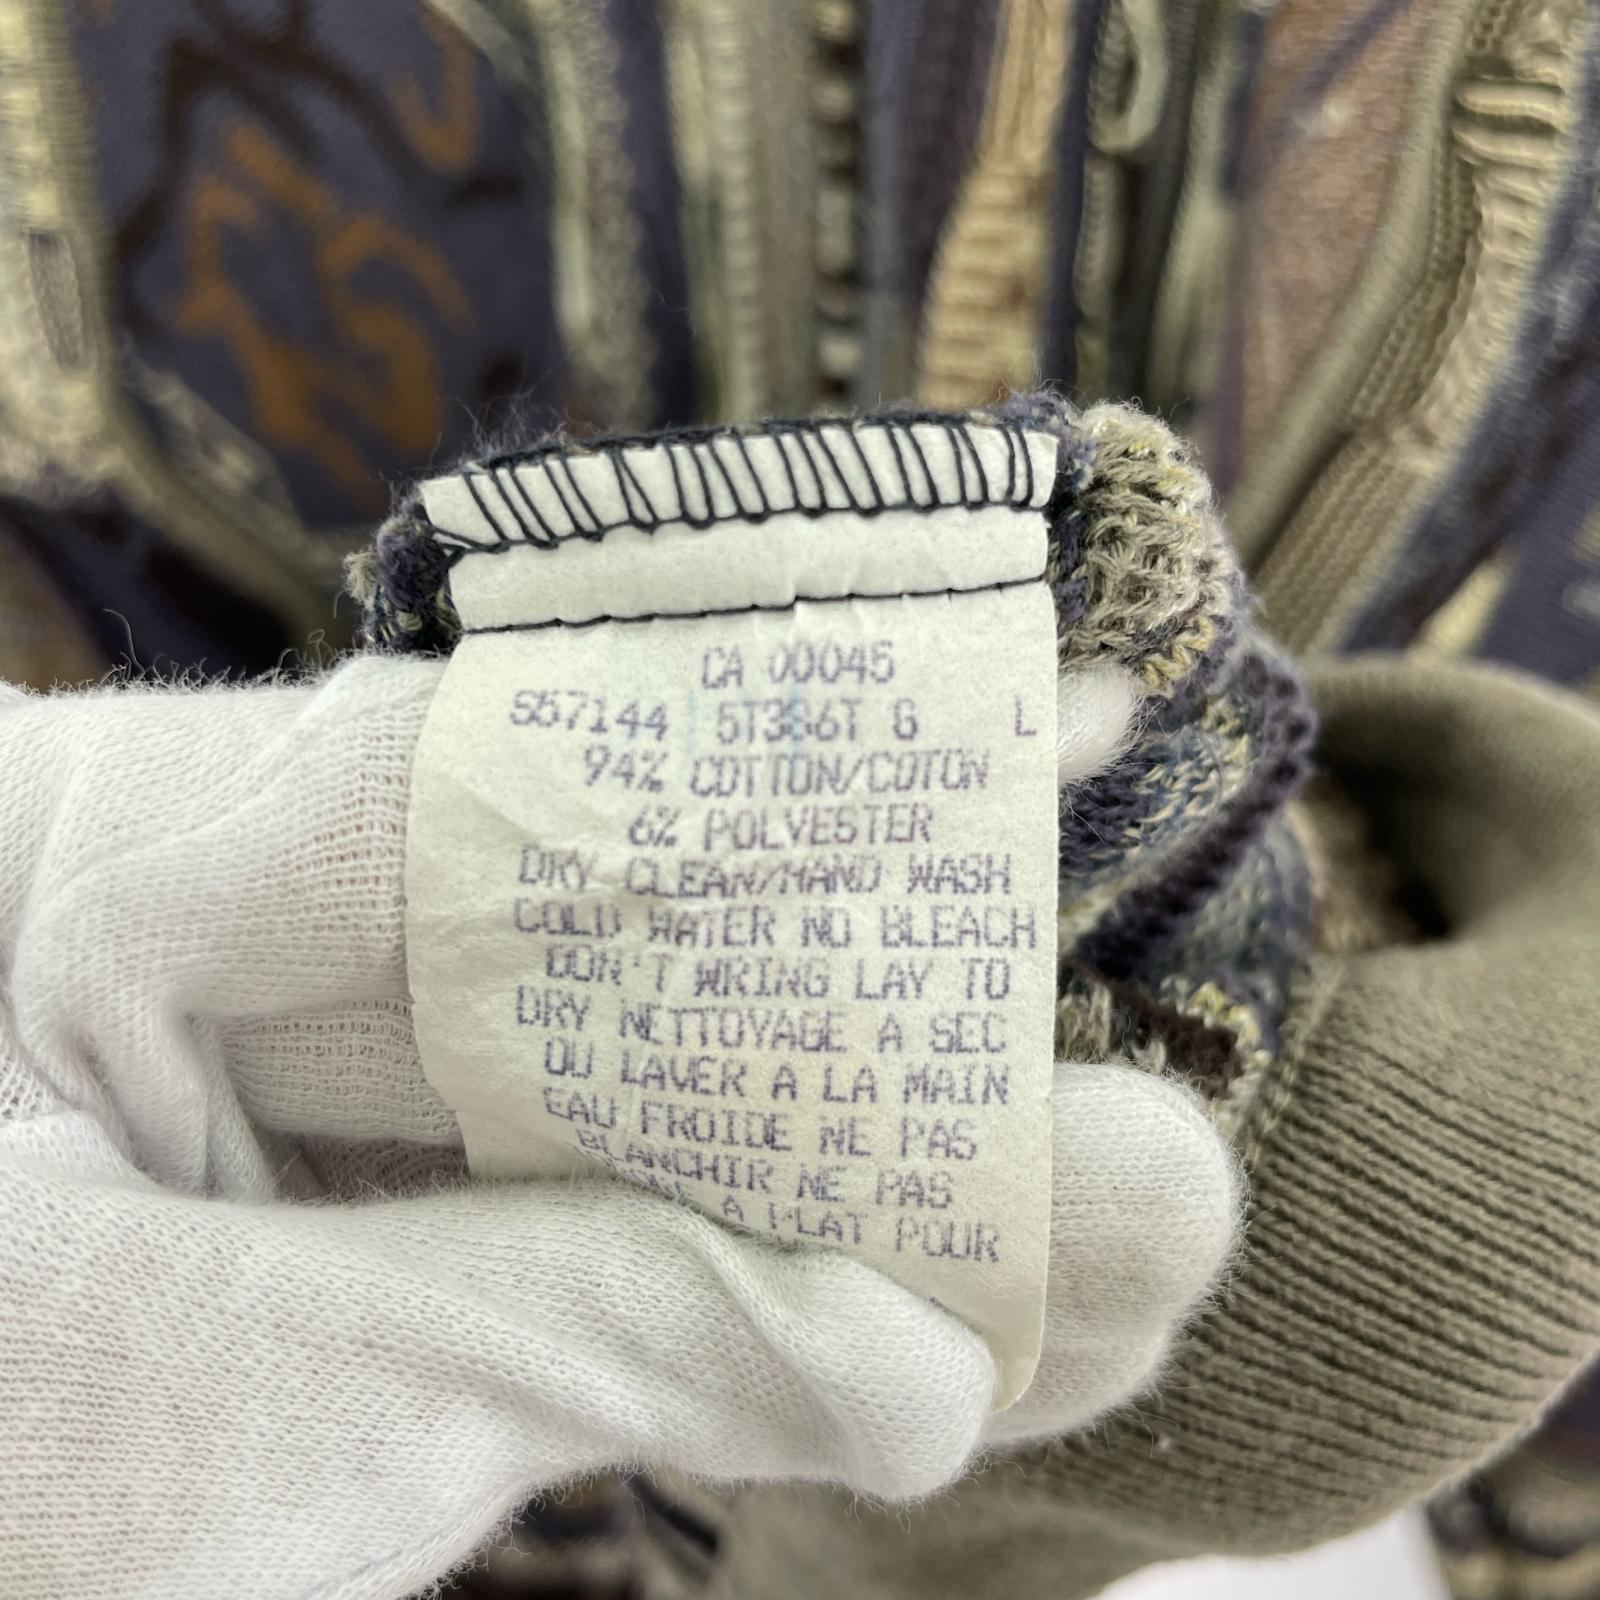 CA 00045
S57144 5T386T G L
94% COTTON/COTON
6% POLYESTER
DRY CLEAN/HAND WASH
COLD WATER NO BLEACH
DON'T WRING LAY TO
DRY NETTOYAGE A SEC
OU LAVER A LA MAIN
EAU FROIDE NE PAS
BLANCHIR NE PAS
A PLAT POUR